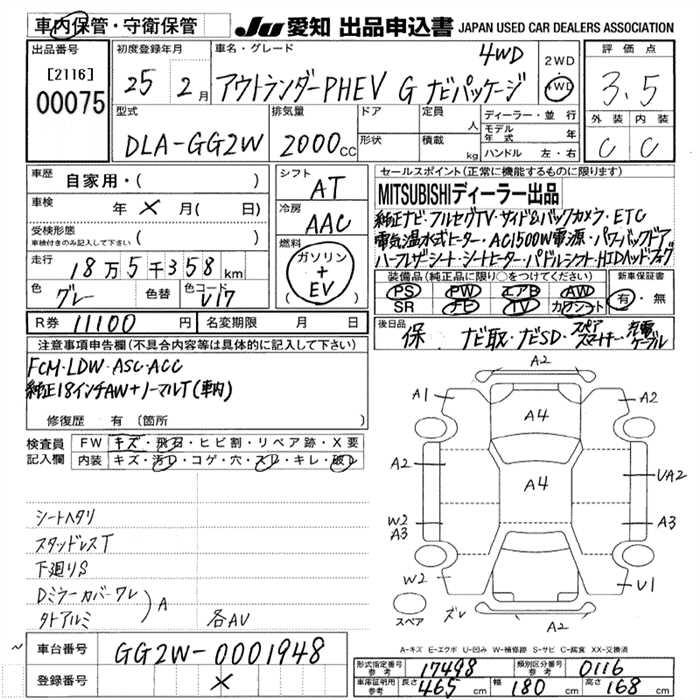 車内保管・守衛保管 JU 愛知 出品申込書 JAPAN USED CAR DEALERS ASSOCIATION
出品番号 初度登録年月 車名・グレード 4WD 2WD 4WD 評価点
[2116] 00075 25 2月 アウトランダーPHEV G ナビパッケージ 3.5
型式 排気量 ドア 定員 人 ディーラー・並行 外装 内装
DLA-GG2W 2000cc 形状 積載 kg モデル年式 年 C C
ハンドル 左・右
車歴 自家用・( ) シフト AT セールスポイント(正常に機能するものに限ります)
車検 年 × 月( ) 冷房 AAC MITSUBISHIディーラー出品
受検形態 車検付きのみ記入して下さい ( ) 燃料 ガソリン + EV
純正ナビ・フルセグTV・サイド&バックカメラ・ETC
電気温水式ヒーター・AC1500W電源・パワーバックドア
ハーフレザーシート・シートヒーター・パドルシフト・HIDヘッド・フォグ
走行 18万5千358km 装備品(純正品に限り○をつけてください) 新車保証書
色 グレー 色替 色コード U17 PS PW エアB AW 有・無
SR ナビ TV カワシート
R券 11100円 名変期限 月 日 後日品 保 ナビ取・ナビSD・スペアスマートキー・充電ケーブル
注意事項申告欄(不具合内容等は具体的に記入して下さい)
FCM・LDW・ASC・ACC
純正18インチAW+ノーマルT(車内)
修復歴 有 〔箇所 〕
検査員記入欄 FW キズ・飛石・ヒビ割・リペア跡・X要
内装 キズ・汚レ・コゲ・穴・スレ・キレ・破レ
シートヘタリ
スタッドレスT
下廻りS
Dミラーカバーワレ
タトアルミ )A 各AV
A2
A1 A4 A2
A2 A4 UA2
W2 A3 A3
W2 U1
スペア ズレ A2
A-キズ E-エクボ U-凹み W-補修跡 S-サビ C-腐食 XX-交換済
~ 車台番号 GG2W-0001948 形式指定番号 参考 17498 類別区分番号 参考 0116
登録番号 × 車庫証明用 参考 長さ 465cm 幅 180cm 高さ 168cm